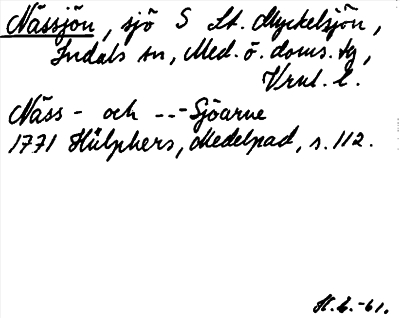 Nässjön, sjö S St. Myckelsjön,
Indals sn, Med. ö. doms. tg,
Vrnl. l.
Näss- och ---Sjöarne
1771 Hülphers, Medelpad, s. 112.
H.L.-61.